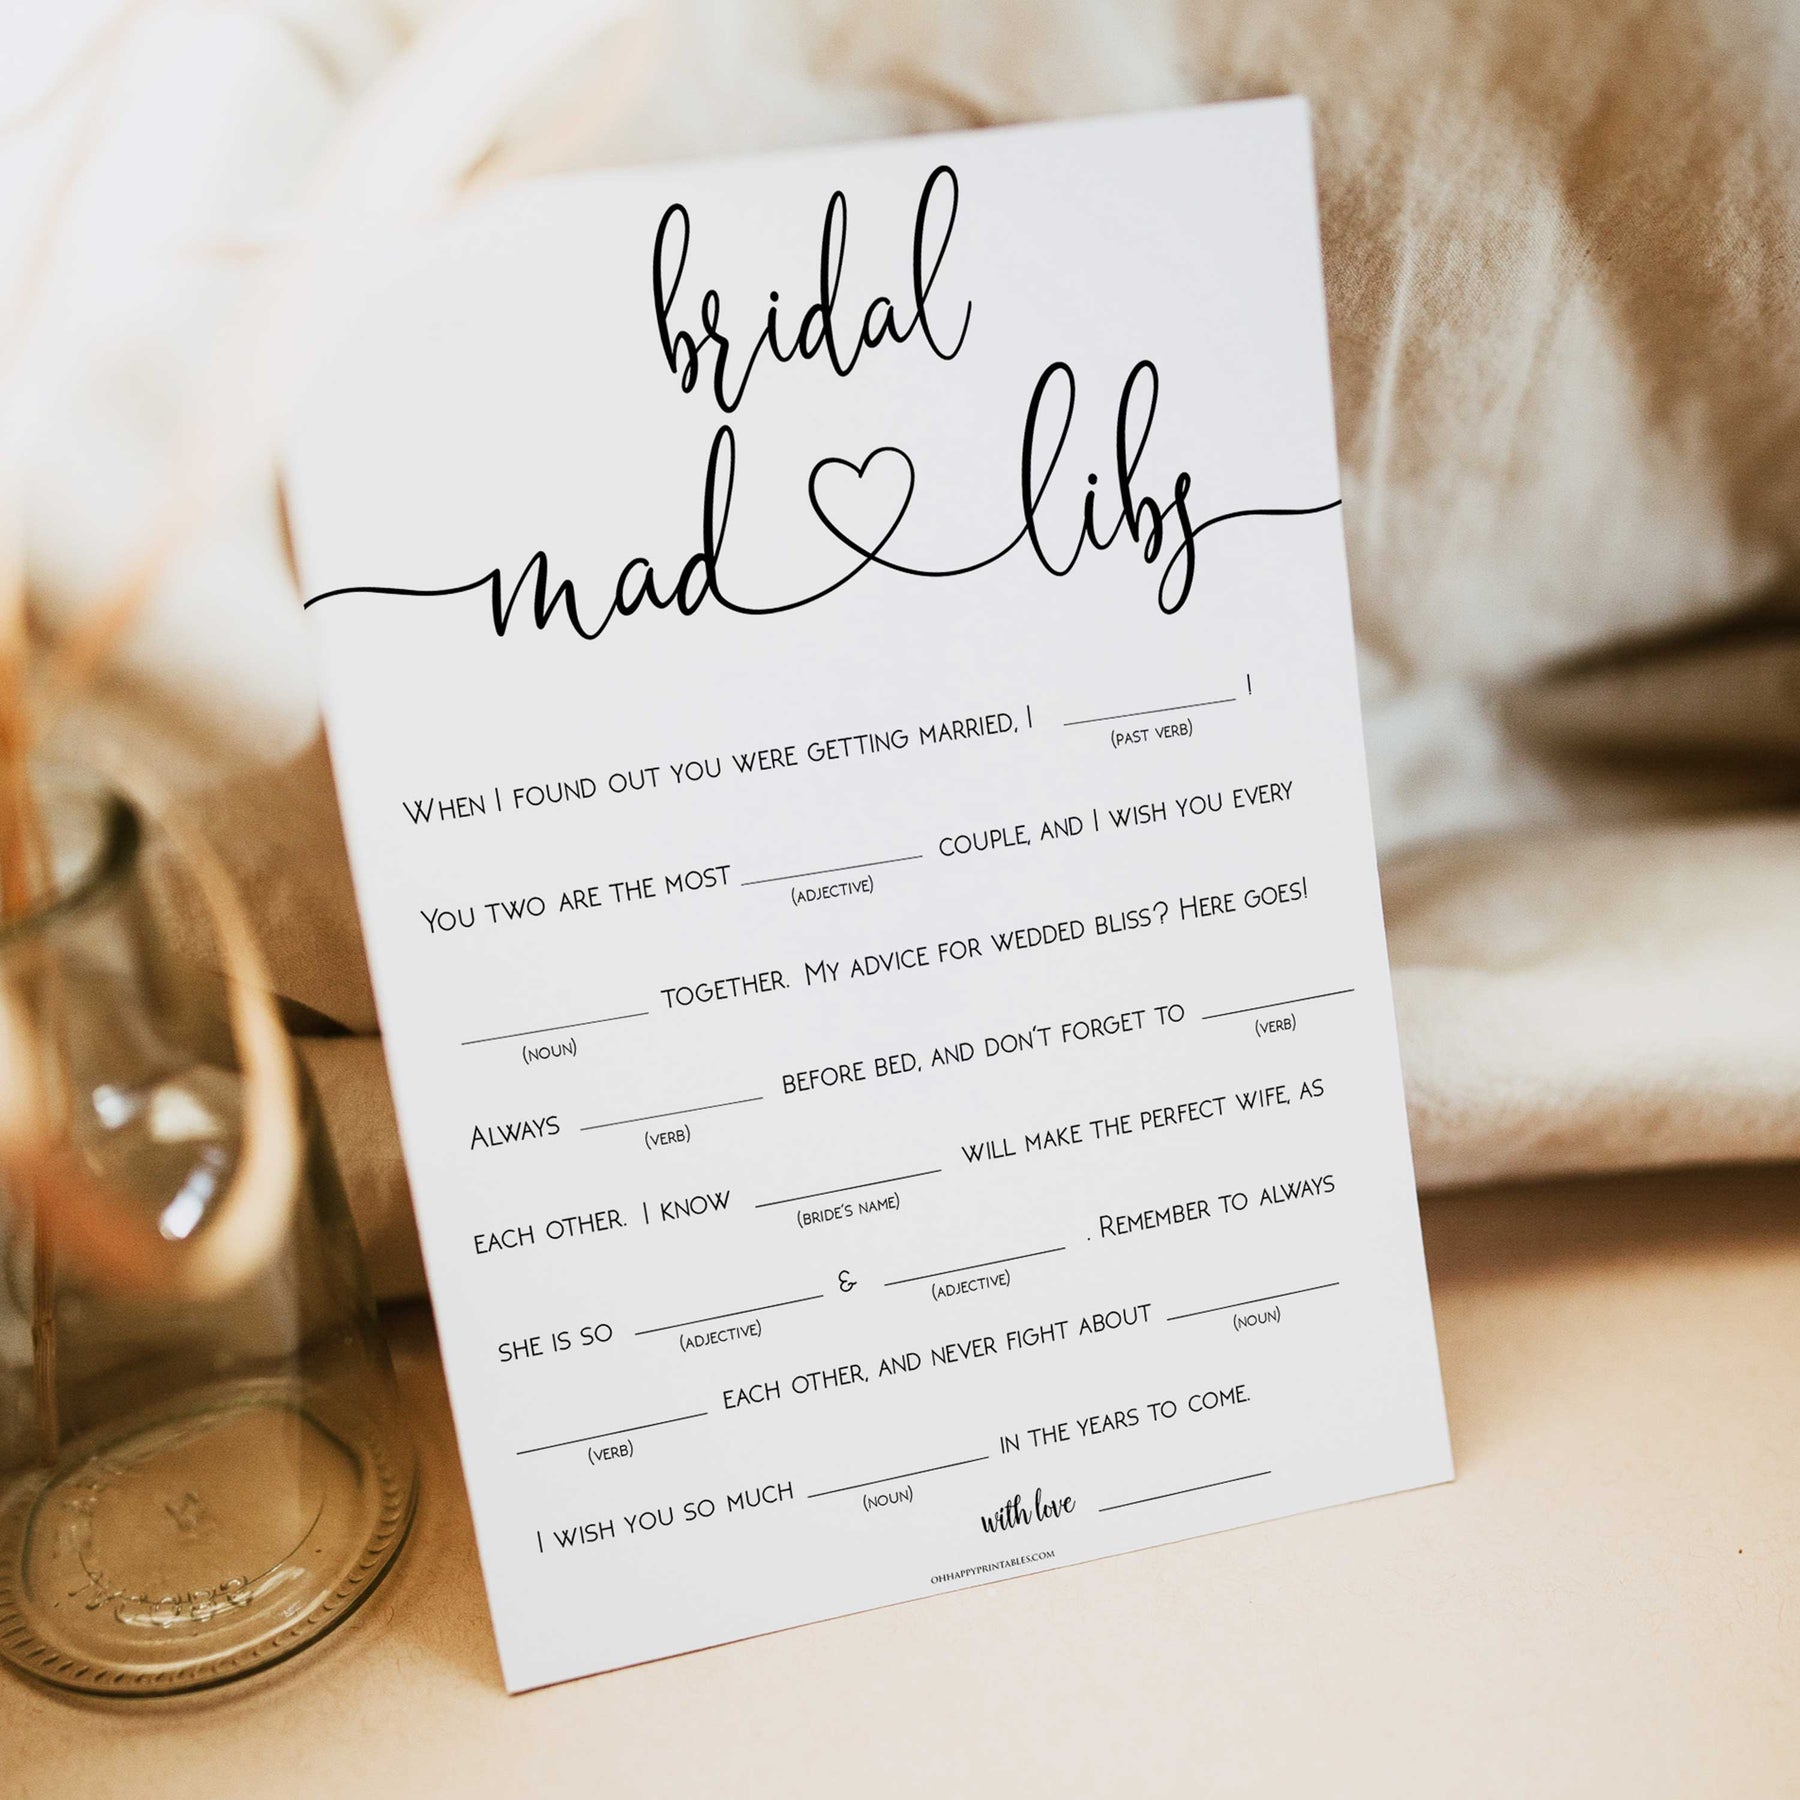 bridal
mad libs
When I found out you were getting married, I ____________ !
(past verb)
You two are the most ____________ couple, and I wish you every
(adjective)
____________ together. My advice for wedded bliss? Here goes!
(noun)
Always ____________ before bed, and don't forget to ____________
(verb) (verb)
each other. I know ____________ will make the perfect wife, as
(bride's name)
she is so ____________ & ____________ . Remember to always
(adjective) (adjective)
____________ each other, and never fight about ____________
(verb) (noun)
I wish you so much ____________ in the years to come.
(noun)
with love ____________
OHHAPPYPRINTABLES.COM